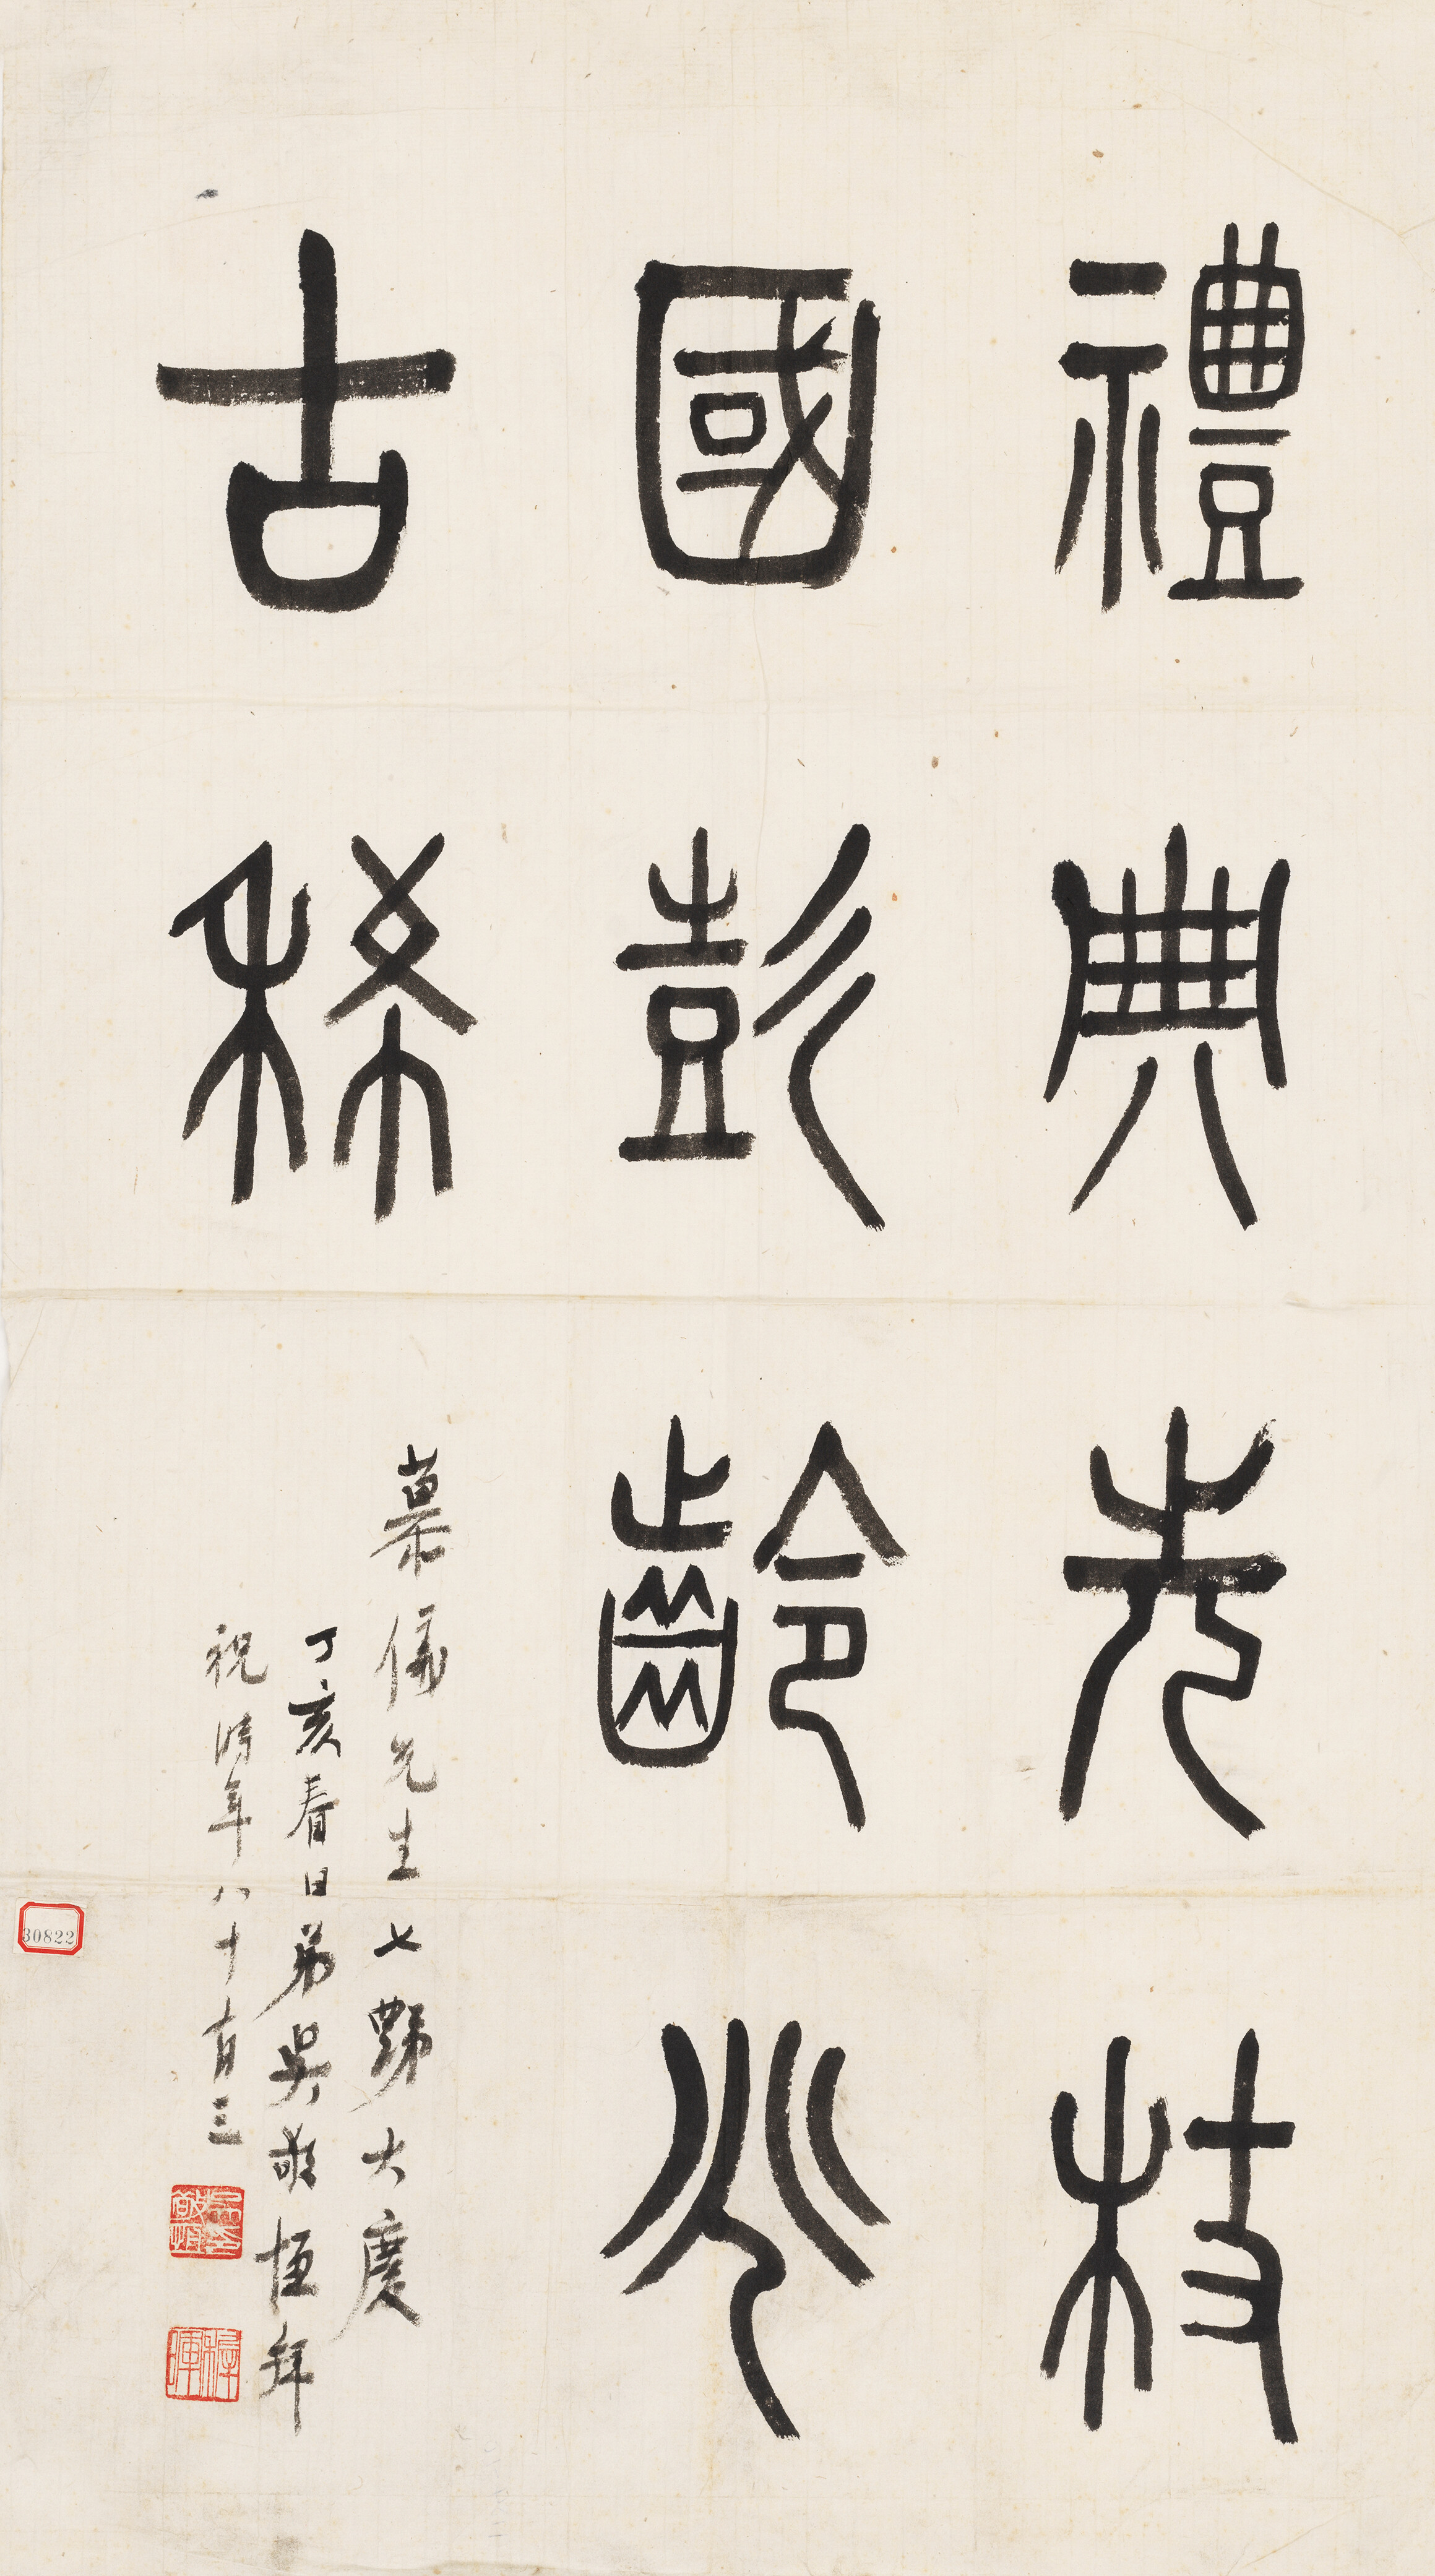 禮典先杖
國彭齡兆
古稀
慕儀先生七豑大慶
丁亥春日弟吳敬恒拜
祝時年八十有三
稚暉
30822